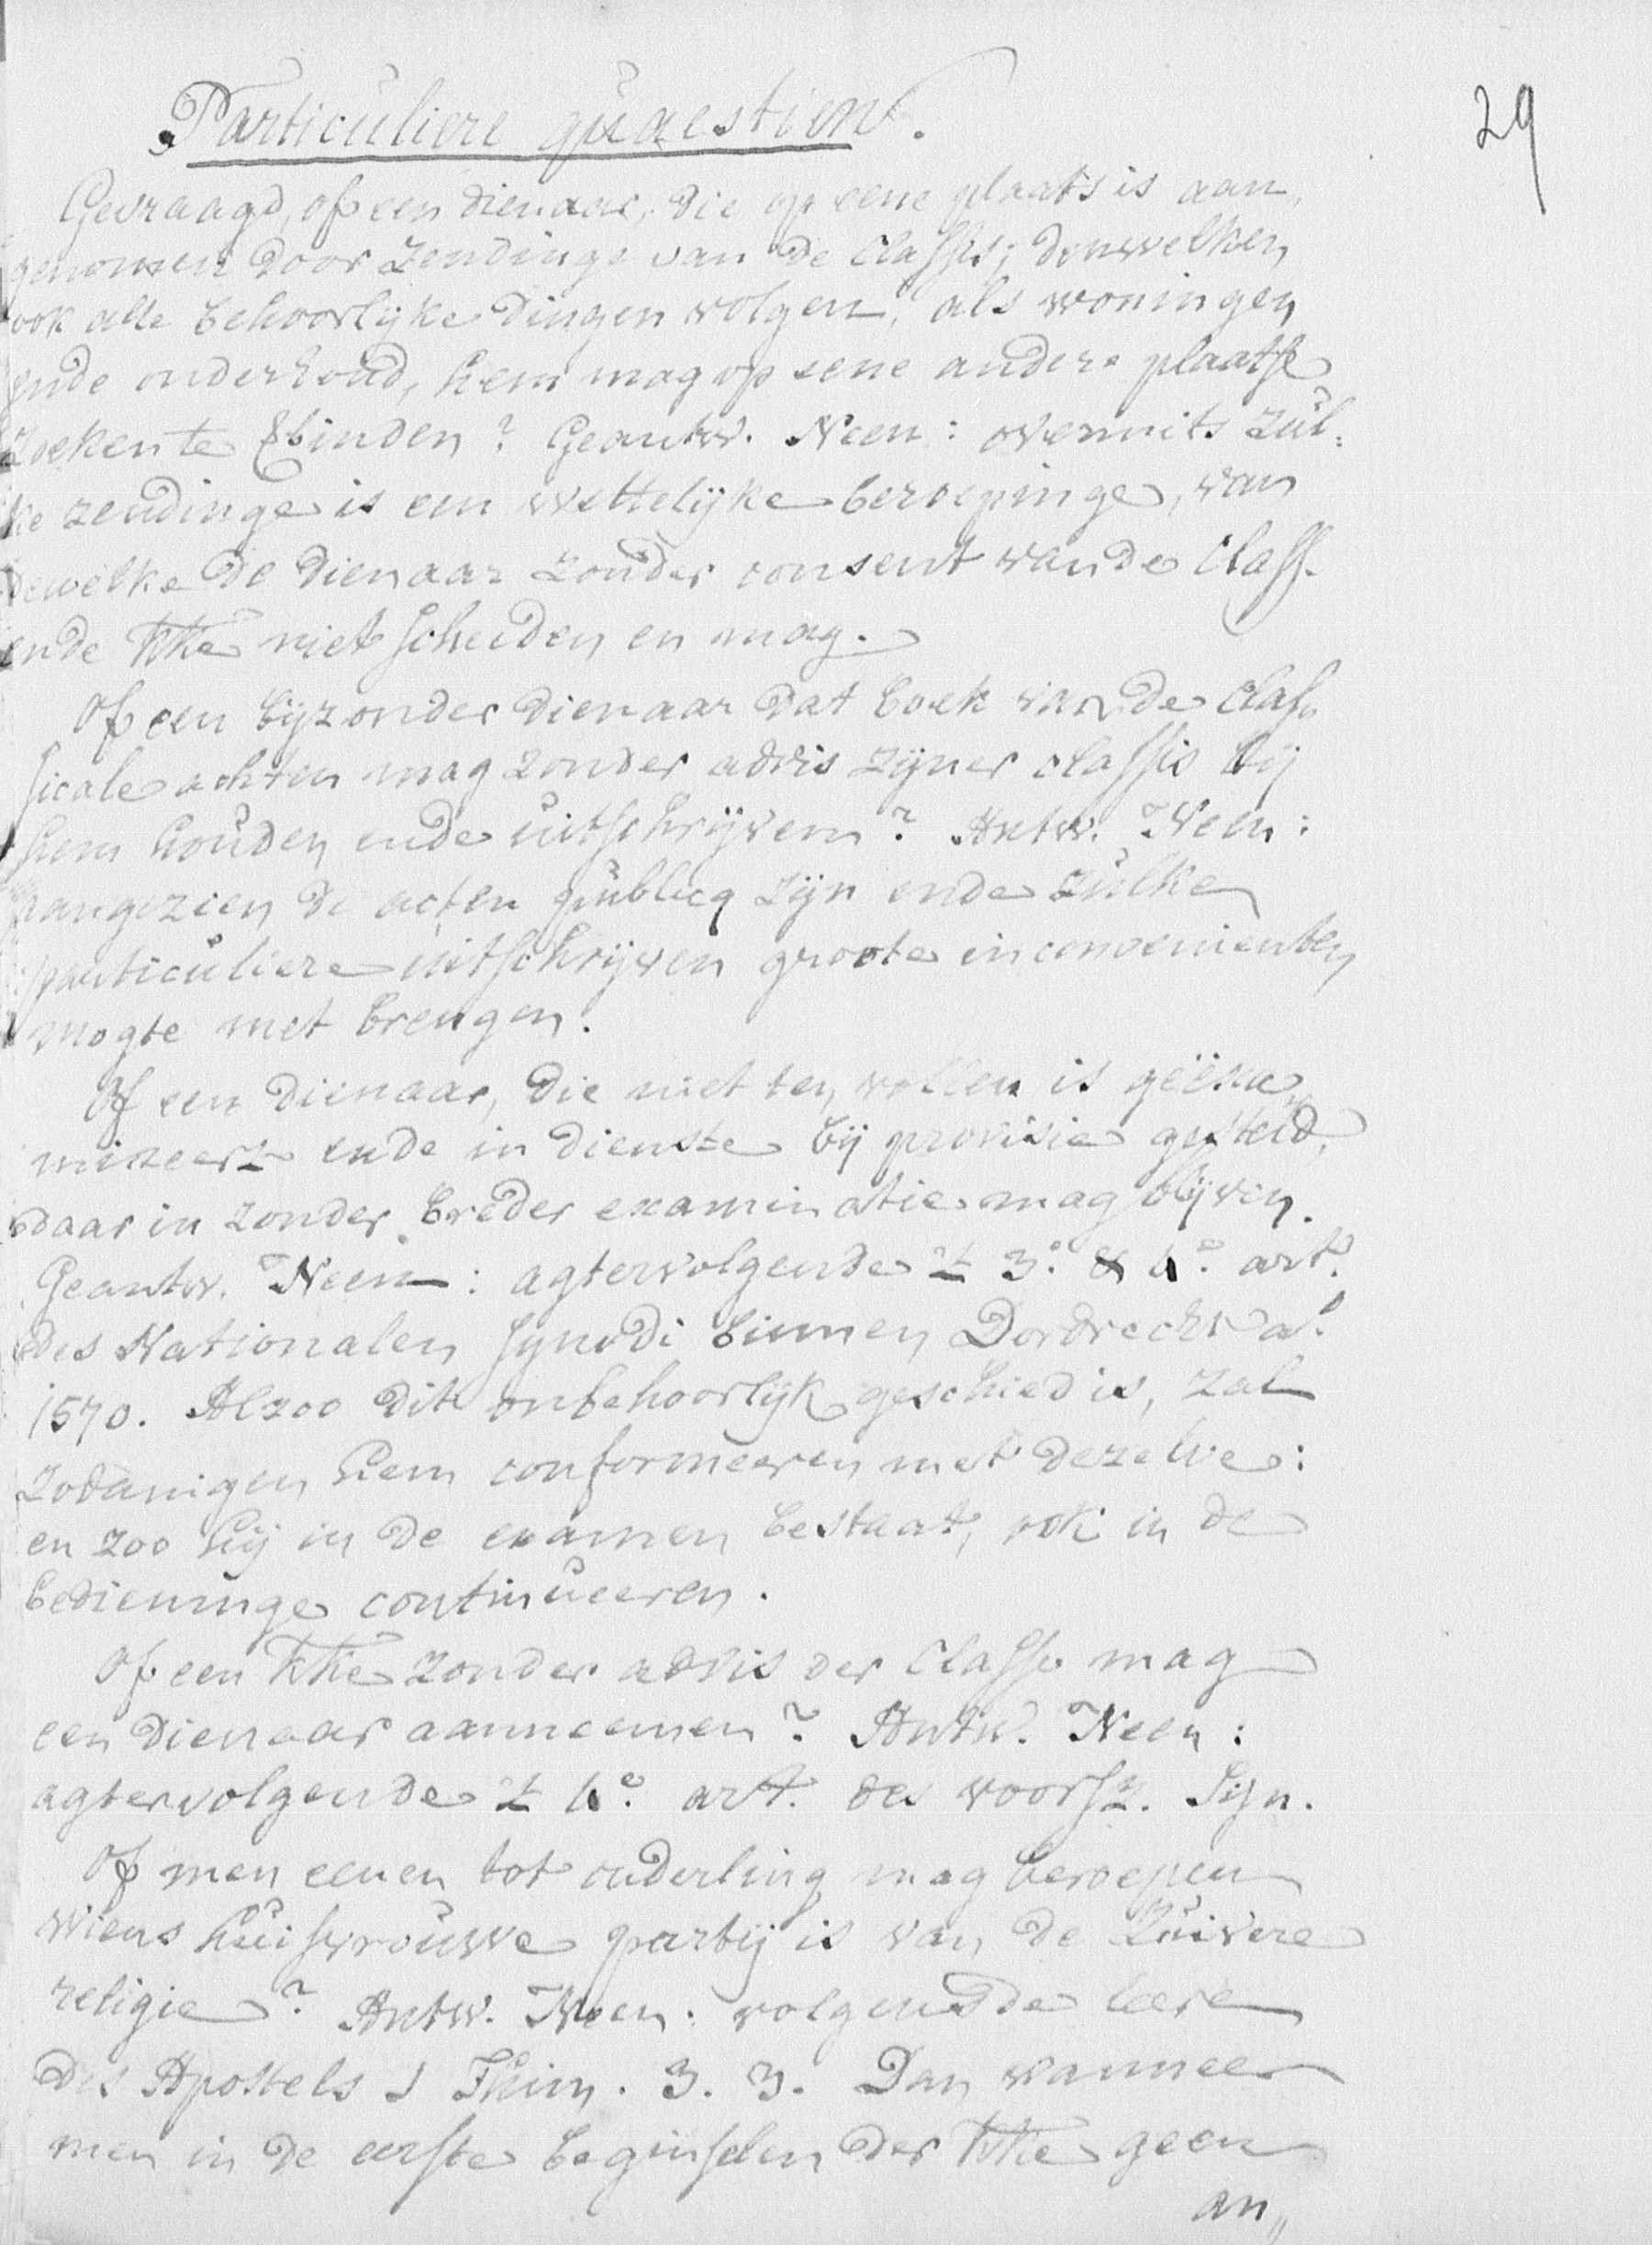 29
Particuliere quaestien.
Gevraagd, of een dienaar, die op eene plaats is aan„
genomen door zendinge van de Classis; denwelken
ook alle behoorlijke dingen volgen, als woningen
ende onderhoud, hem mag op eene andere plaatse
zoeken te binden? Geantw. Neen: overmits zul„
ke zendinge is een wettelijke beroepinge, van
dewelke de dienaar zonder consent van de Class.
ende kke niet scheiden en mag.
Of een bijzonder dienaar dat boek van de clas„
sicale achten mag zonder advis zijner classis bij
hem houden ende uitschrijven? Antw. Neen:
aangezien de acten publicq zijn ende zulke
particuliere uitschrijven groote inconvenienten
mogte met brengen.
Of een dienaar, die niet ten vollen is geëxa„
mineert ende in dienste bij provisie gesteld,
daar in zonder breder examinatie mag blijven.
Geantw. Neen: agtervolgende 't 3e. & 4e. art.
des Nationalen Synodi binnen Dordrecht ao.
1570. Alzoo dit onbehoorlijk geschied is, zal
zodanigen hem conformeeren met dezelve:
en zoo hij in de examen bestaat, ook in de
bedieninge continueeren.
Of een kke zonder advis der Classe mag
een dienaar aanneemen? Antw. Neen:
agtervolgende 't 4e. art. des voorsz. Syn.
Of men eenen tot ouderling mag beroepen
wiens huisvrouwe partij is van de zuivere
religie? Antw. Neen: volgens de leere
des Apostels 1 Thim. 3. 3. Dan wanneer
men in de eerste beginselen der kke geen
an„